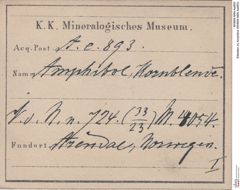 K. K. Mineralogisches Museum.
Acq. Post. A. e. 893.
Name Amphibol, Hornblende.
724. (33/23) M. 4054.
Fundort Arendal, Norwegen.
I